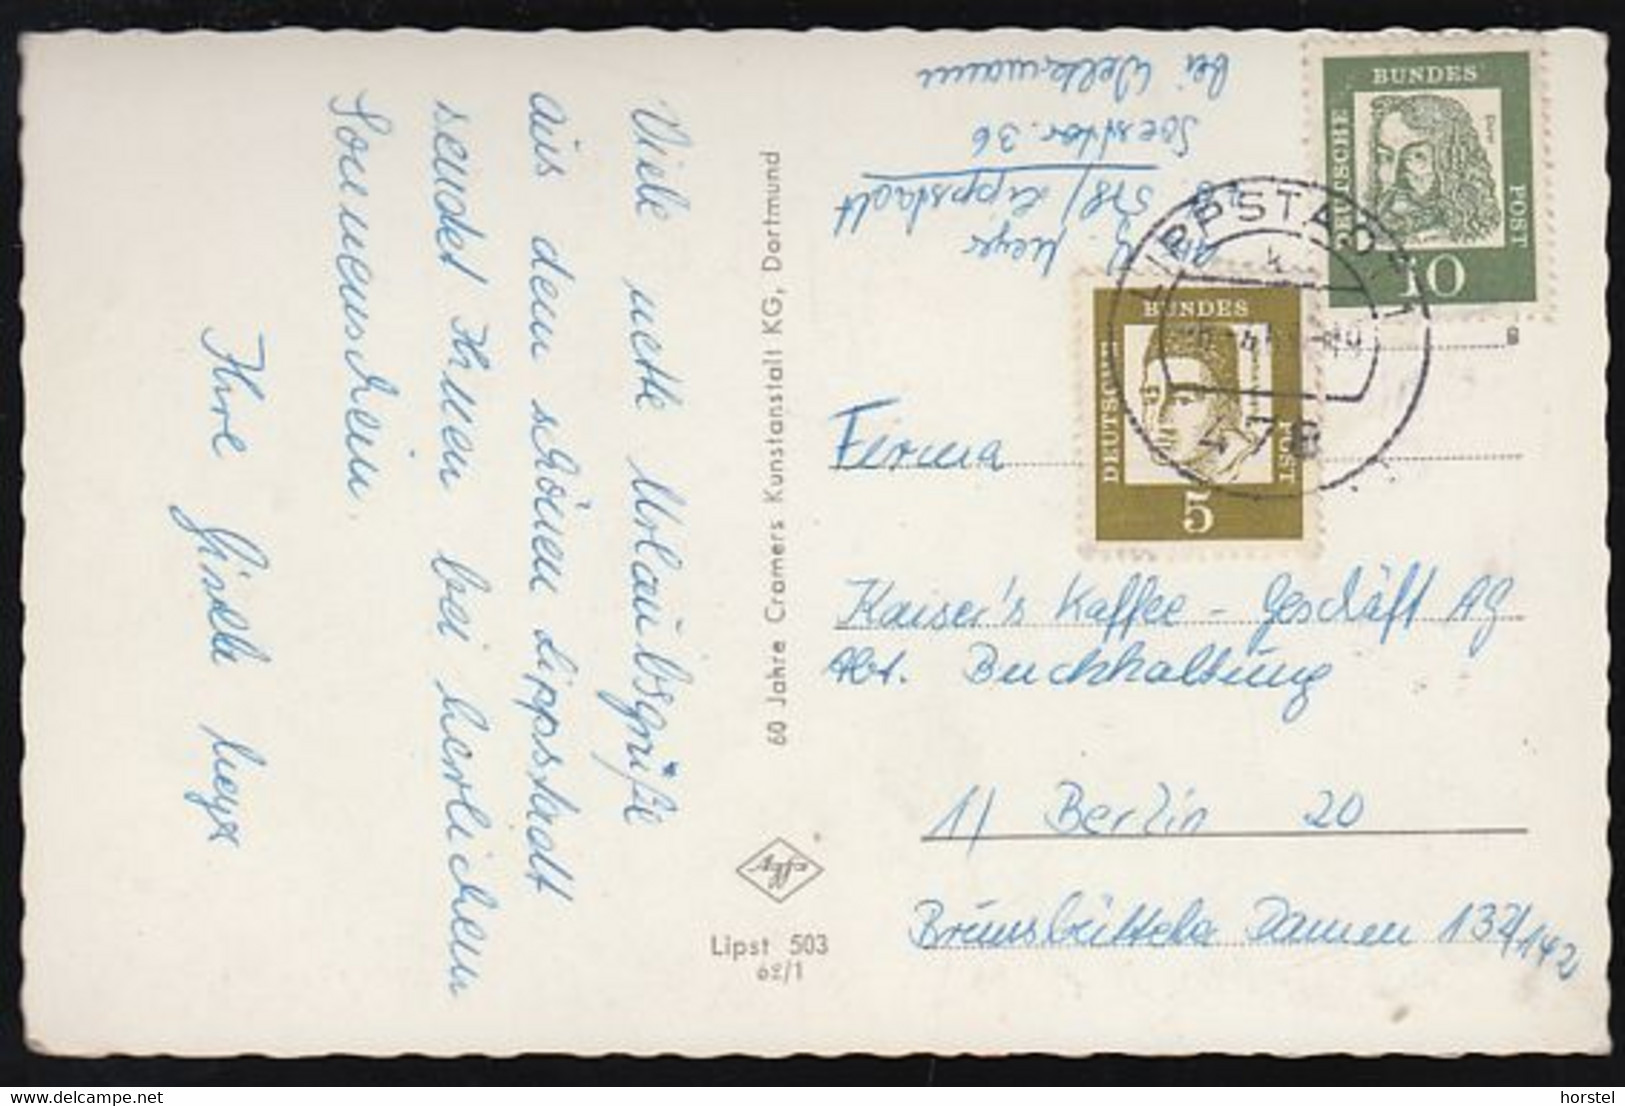 Viele nette Urlaubsgrüße
aus dem schönen Lippstadt
sendet Ihnen bei herrlichem
Sonnenschein.
Ihre Gisela Meyer
60 Jahre Cramers Kunstanstalt KG, Dortmund
Lipst 503
62/1
Abs.
G. Meyer
478 / Lippstadt
Soesttor. 36
bei Welkemann
BUNDES
DEUTSCHE
POST
Dürer
10
BUNDES
DEUTSCHE
POST
5
LIPPSTADT
k
478
Firma
Kaiser's Kaffee - Geschäft AG
Abt. Buchhaltung
1) Berlin 20
Brunsbütteler Dammen 132/142
delcampe.net
horstel